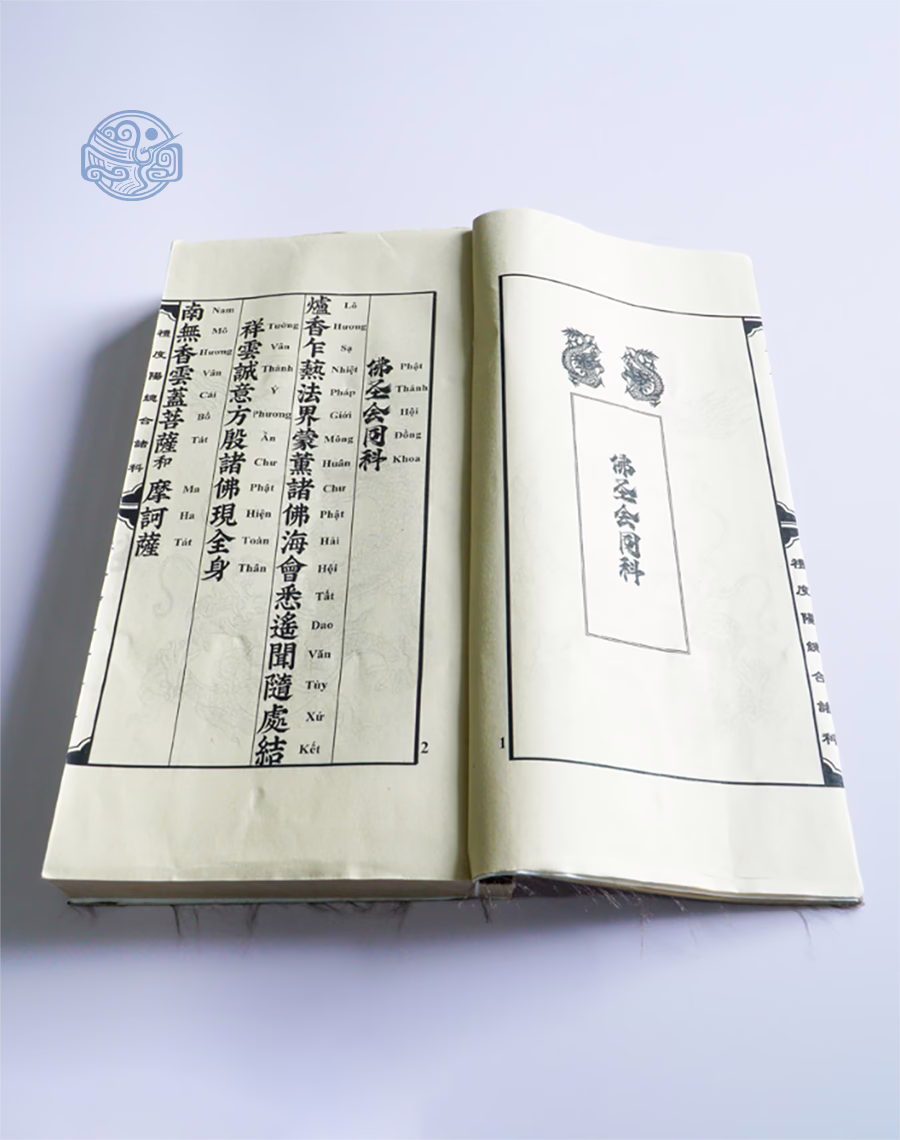 佛圣会同科
禮度陽總合諸科
1
佛圣会同科
Phật Thánh Hội Đồng Khoa
爐香乍爇法界蒙薰諸佛海會悉遙聞隨處結
Lô Hương Sạ Nhiệt Pháp Giới Mông Huân Chư Phật Hải Hội Tất Dao Văn Tùy Xứ Kết
祥雲誠意方殷諸佛現全身
Tường Vân Thành Ý Phương Ân Chư Phật Hiện Toàn Thân
南無香雲蓋菩薩和摩訶薩
Nam Mô Hương Vân Cái Bồ Tát Ma Ha Tát
禮度陽總合諸科
2